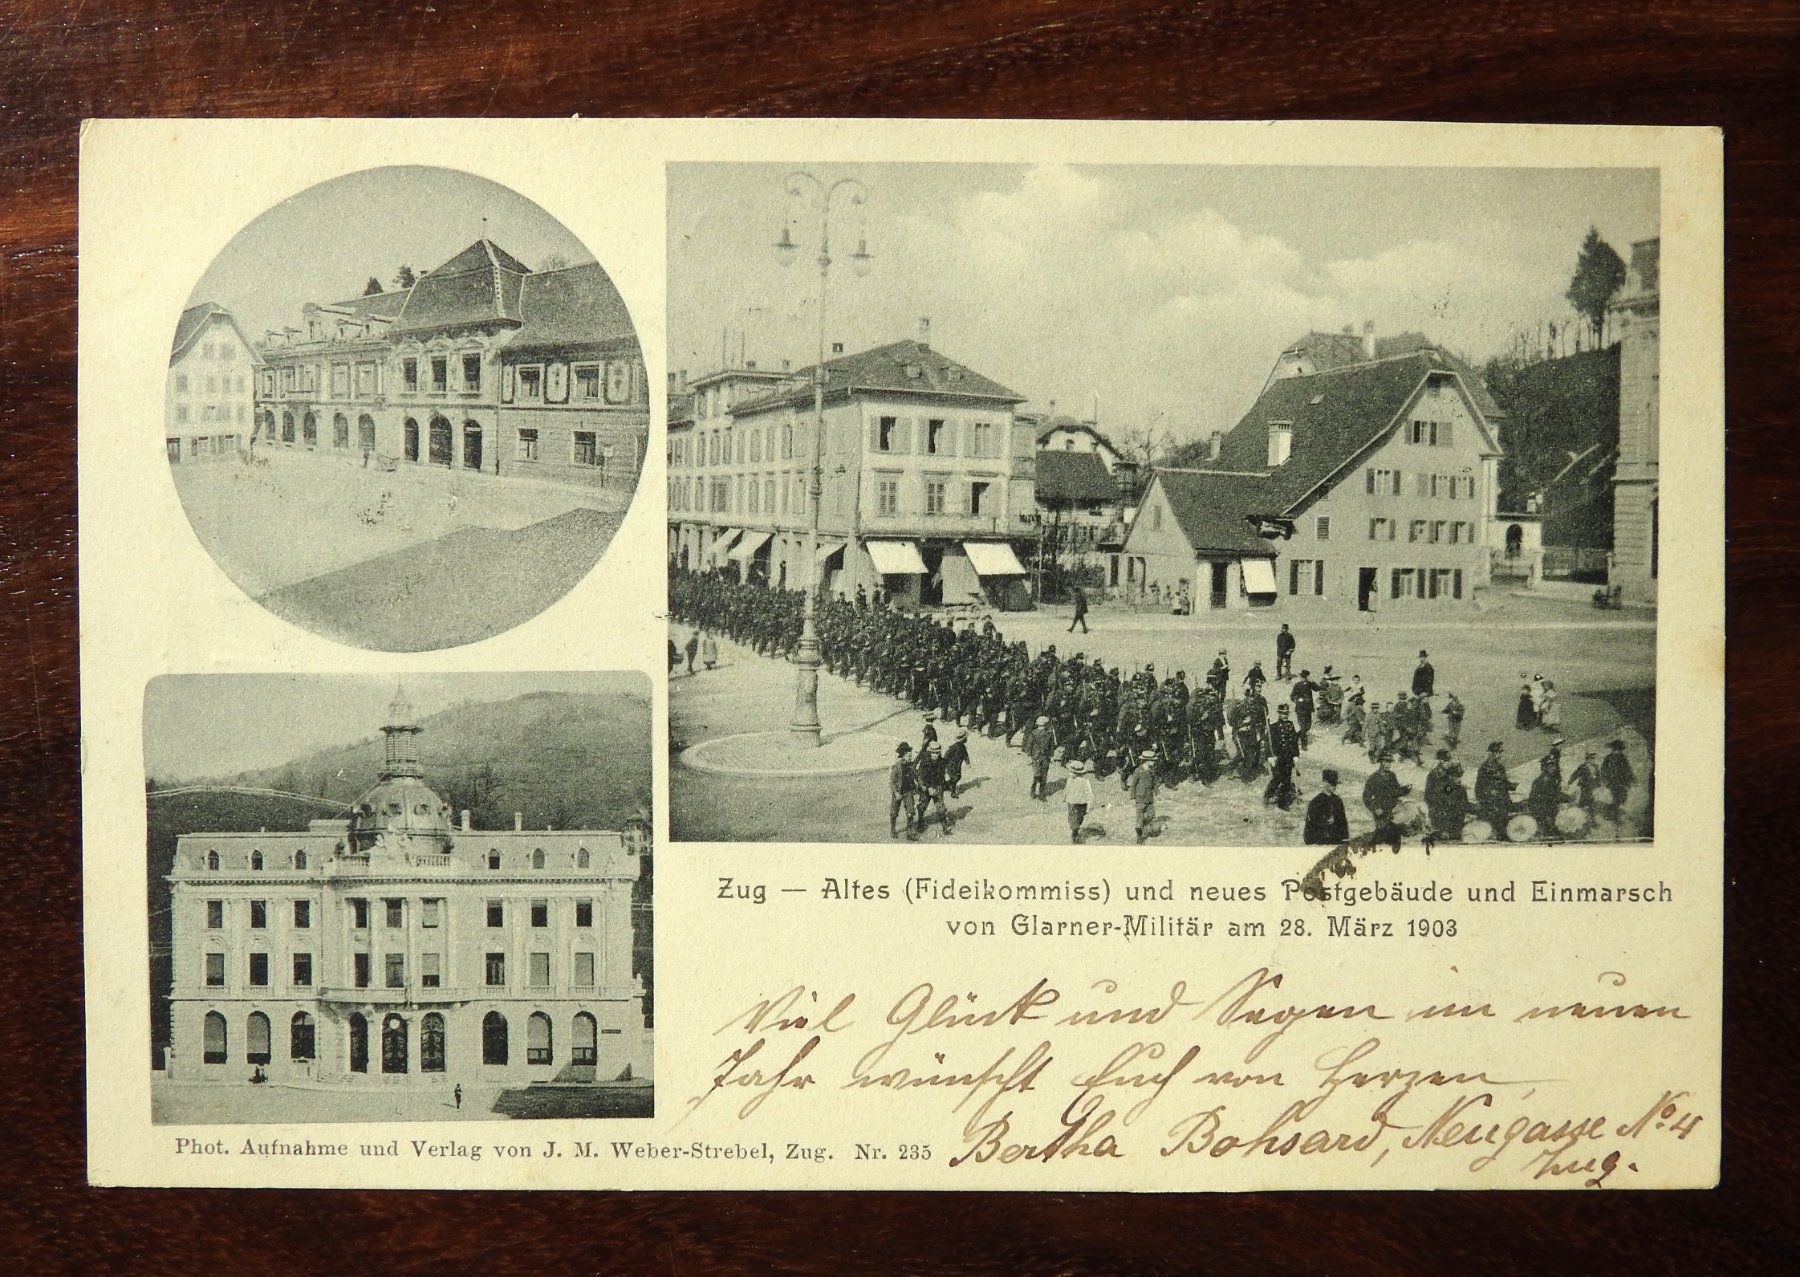 Zug — Altes (Fideikommiss) und neues Postgebäude und Einmarsch
von Glarner-Militär am 28. März 1903
Viel Glück und Segen im neuen
Jahr wünscht Euch von Herzen,
Bertha Bohsard, Neugasse No. 4
Zug.
Phot. Aufnahme und Verlag von J. M. Weber-Strebel, Zug. Nr. 235